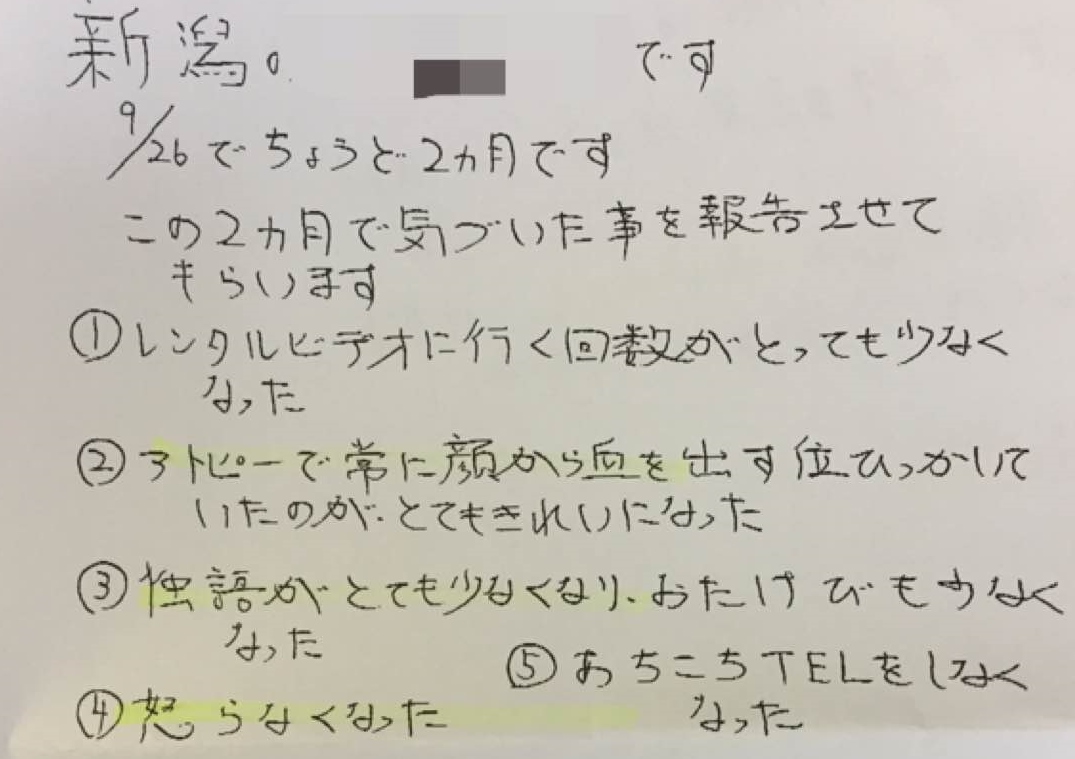 新潟。 です
9/26でちょうど2ヵ月です
この2ヵ月で気づいた事を報告させて
もらいます
①レンタルビデオに行く回数がとっても少なく
なった
②アトピーで常に顔から血を出す位ひっかいて
いたのが、とてもきれいになった
③独語がとても少なくなり、おたけびも少なく
なった
④怒らなくなった
⑤あちこちTELをしなく
なった